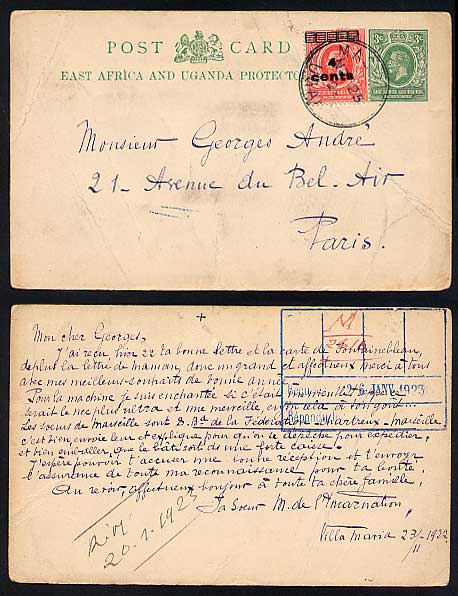 POST CARD
EAST AFRICA AND UGANDA PROTECTO
4 cents
3c 3c
25
Monsieur Georges André
21 - Avenue du Bel-Air
Paris.
Mon cher Georges,
J'ai reçu, hier 22 ta bonne lettre et la carte de Fontainebleau,
de plus la lettre de maman, donc un grand et affectueux merci à tous
avec mes meilleurs souhaits de bonne année
Pour la machine je suis enchantée si c'était
serait le nec plus ultra et une merveille
Les soeurs de Marseille sont Bd de la Chartreux - Marseille
c'est bien, envoie leur et explique pour qu'on se dépêche pour expédier,
et bien emballer, que le soit une forte caisse.
J'espère pouvoir t'accuser une bonne réception et t'envoyer
l'assurance de toute ma reconnaissance pour ta bonté.
Au revoir, affectueux bonjour à toute ta chère famille,
Ta Soeur M. de l'Incarnation
Villa Maria 23/
26 JANV. 1923
20.1.1923